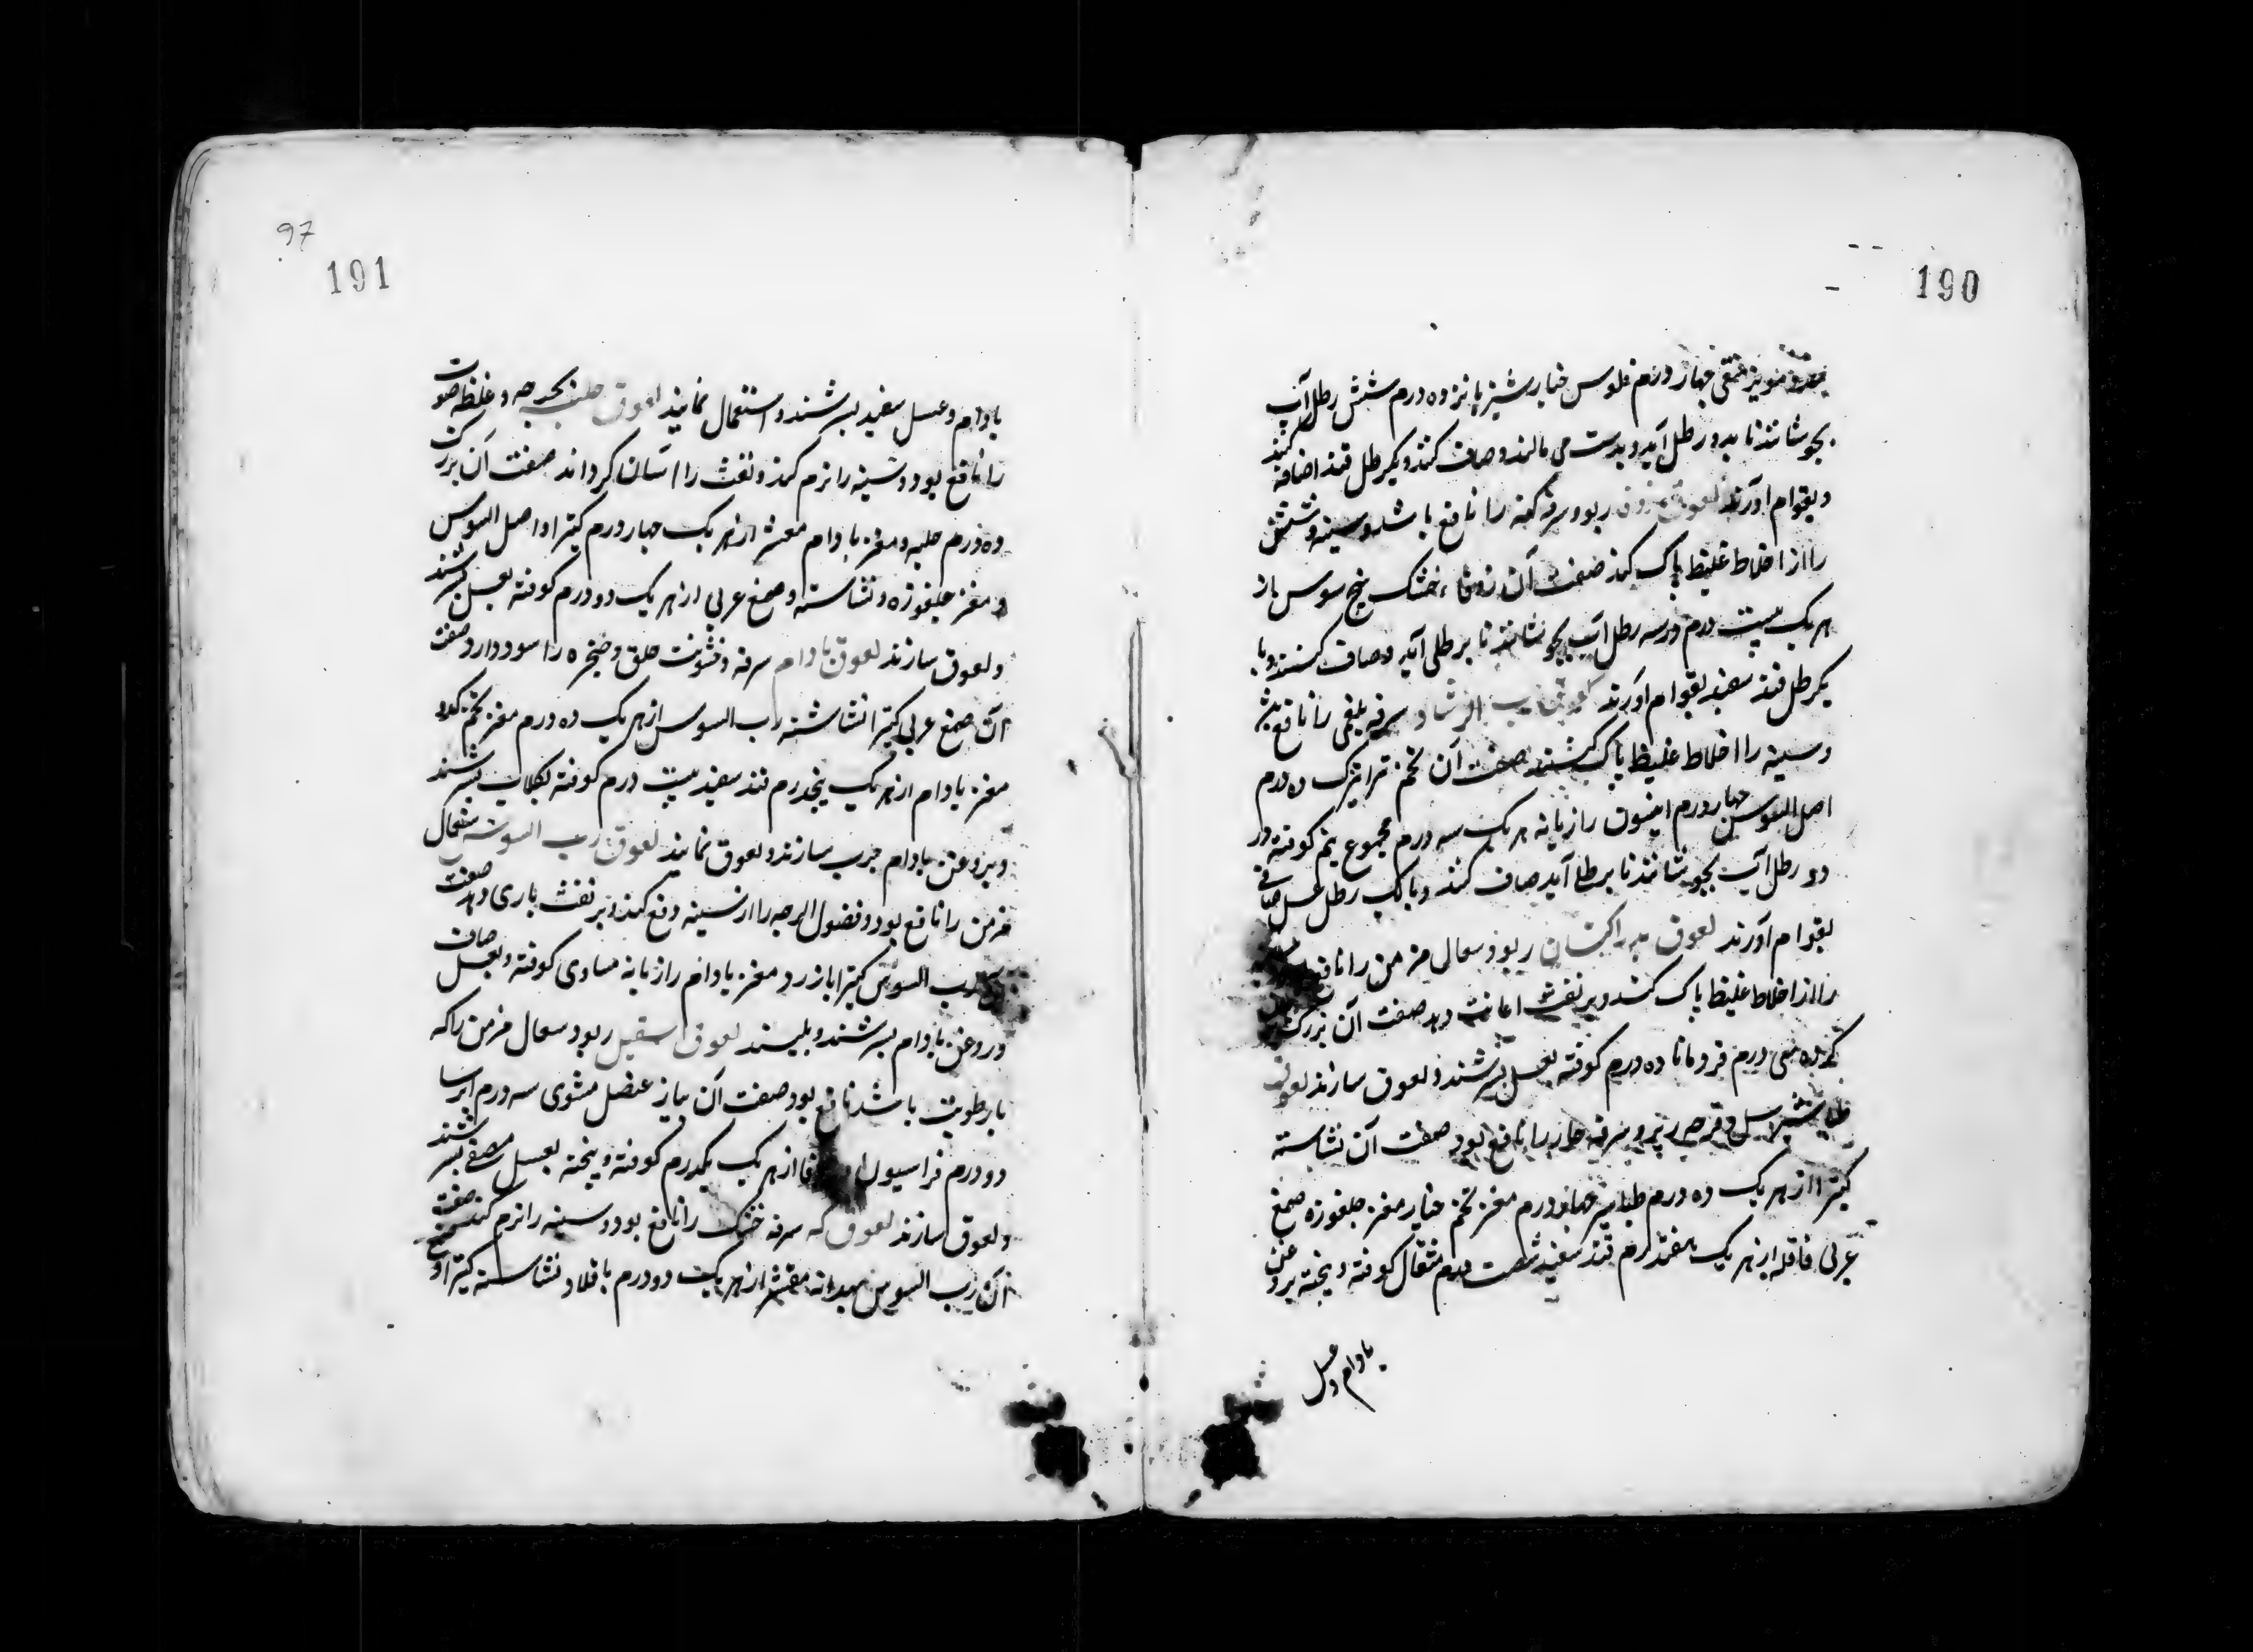 190
مویز منقی چهار درم فلوس خیار شنبر پانزده درم شش رطل آب
بجوشانند تا بدو رطل آید و بدست می مالند و صاف کنند و یکرطل قند اضافه کنند
و بقوام آورند لعوق زوفا ربو و سرفه کهنه را نافع باشد و سینه و شش
را از اخلاط غلیظ پاک کند صفت آن زوفاء خشک بیخ سوس از
هر یک بیست درم در سه رطل آب بجوشانند تا برطلی آید و صاف کنند و با
یکرطل قند سفید بقوام آورند لعوق حب الرشاد سرفه بلغمی را نافع بود
و سینه را اخلاط غلیظ پاک کند صفت آن تخم ترتیزک ده درم
اصل السوس چهار درم انیسون رازیانه هر یک سه درم مجموع نیم کوفته در
دو رطل آب بجوشانند تا برطلی آید صاف کنند و با یک رطل عسل صافی
بقوام آورند لعوق بزر کتان ربو و سعال مزمن را نافع
را از اخلاط غلیظ پاک کند و بر نفث اعانت دهد صفت آن بزرک
کرده سی درم قردمانا ده درم کوفته بعسل بسرشند و لعوق سازند لعوق
طباشیر سل و قرحه ریه و سرفه حار را نافع بود صفت آن نشاسته
کتیرا از هر یک ده درم طباشیر چهار درم مغز تخم خیار مغز جلغوزه صمغ
عربی قاقله از هر یک هفتدرم قند سفید شصت درم مثقال کوفته و بیخته بروغن
بادام و عسل
97
191
بادام و عسل سفید بسرشند و استعمال نمایند لعوق حلبه بحه و غلظ صوت
را نافع بود و سینه را نرم کند و نفث را آسان گرداند صفت آن بزرک
ده درم حلبه و مغز بادام مقشر از هر یک چهار درم کتیرا و اصل السوس
و مغز جلغوزه و نشاسته و صمغ عربی از هر یک دو درم کوفته بعسل بسرشند
و لعوق سازند لعوق بادام سرفه و خشونت حلق و حنجره را سود دارد صفت
آن صمغ عربی کتیرا نشاسته رب السوس از هر یک ده درم مغز تخم کدو
مغز بادام از هر یک پنجدرم قند سفید بیست درم کوفته بکلاب بسرشند
و بروغن بادام چرب سازند و لعوق نمایند لعوق رب السوس سعال
مزمن را نافع بود و فضول لزجه را از سینه دفع کند و بر نفث یاری دهد صفت
رب السوس کتیرا بازرد مغز بادام رازیانه مساوی کوفته و بعسل صاف
و روغن بادام بسرشند و بلیسند لعوق اسقیل ربو و سعال مزمن را که
با رطوبت باشد نافع بود صفت آن پیاز عنصل مشوی سه درم ایرسا
دو درم فراسیون از هر یک یکدرم کوفته و بیخته بعسل مصفی بسرشند
و لعوق سازند لعوق که سرفه خشک را نافع بود و سینه را نرم کند صفت
آن رب السوس بهدانه مقشر از هر یک دو درم باقلا و نشاسته کتیرا و صمغ